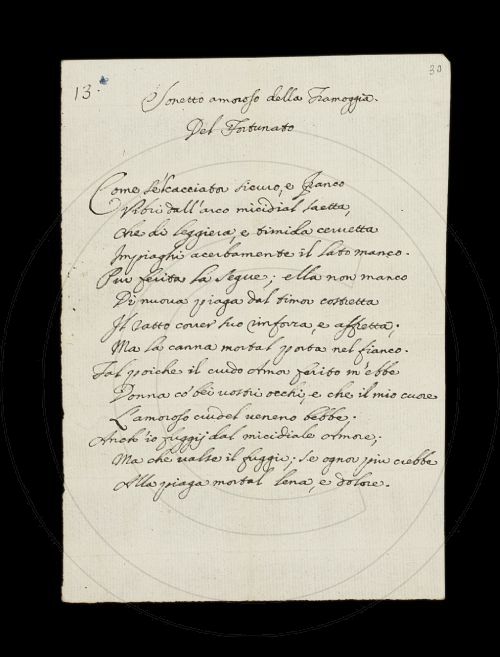 13.
30
Sonetto amoroso della Tramoggia.
Del Fortunato
Come se'l cacciator sicuro, e franco
Vibri dall'arco micidial saetta,
Che di leggiera, e timida cervetta
Impiaghi acerbamente il lato manco.
Pur ferita la segue; ella non manco
Di nuova piaga dal timor costretta
Il ratto correr suo rinforza, e affretta;
Ma la canna mortal porta nel fianco.
Tal poiche il crudo Amor ferito m'ebbe
Donna co' bei vostri occhi, e che il mio cuore
L'amoroso crudel veneno bebbe.
Anch'io fuggij dal micidiale Amore;
Ma che valse il fuggir, se ognor piu crebbe
Alla piaga mortal lena, e dolore.